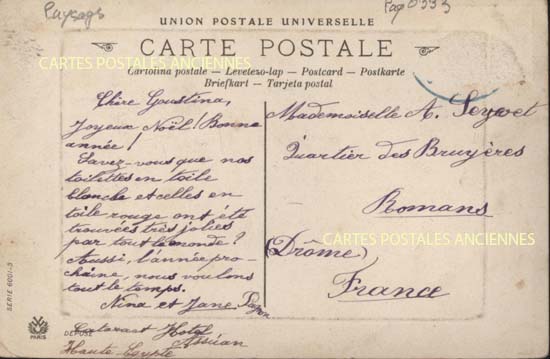 Paysage
Pag 0333
UNION POSTALE UNIVERSELLE
CARTE POSTALE
CARTES POSTALES ANCIENNES
Cartolina postale — Levelezo-lap — Postcard — Postkarte
Briefkart — Tarjeta postal
Chère Goustina,
Joyeux Noël! Bonne
année!
Savez-vous que nos
toilettes en toile
blanche et celles en
toile rouge ont été
trouvées très jolies
par tout le monde?
Aussi, l'année pro-
chaine, nous voulons
tout le temps.
Nina et Jane
Hotel
Assuan
Haute Egypte
Mademoiselle A.
Quartier des Bruyères
Romans
(Drôme)
CARTES POSTALES ANCIENNES
France
SERIE 6001-3
PARIS
DEPOSE